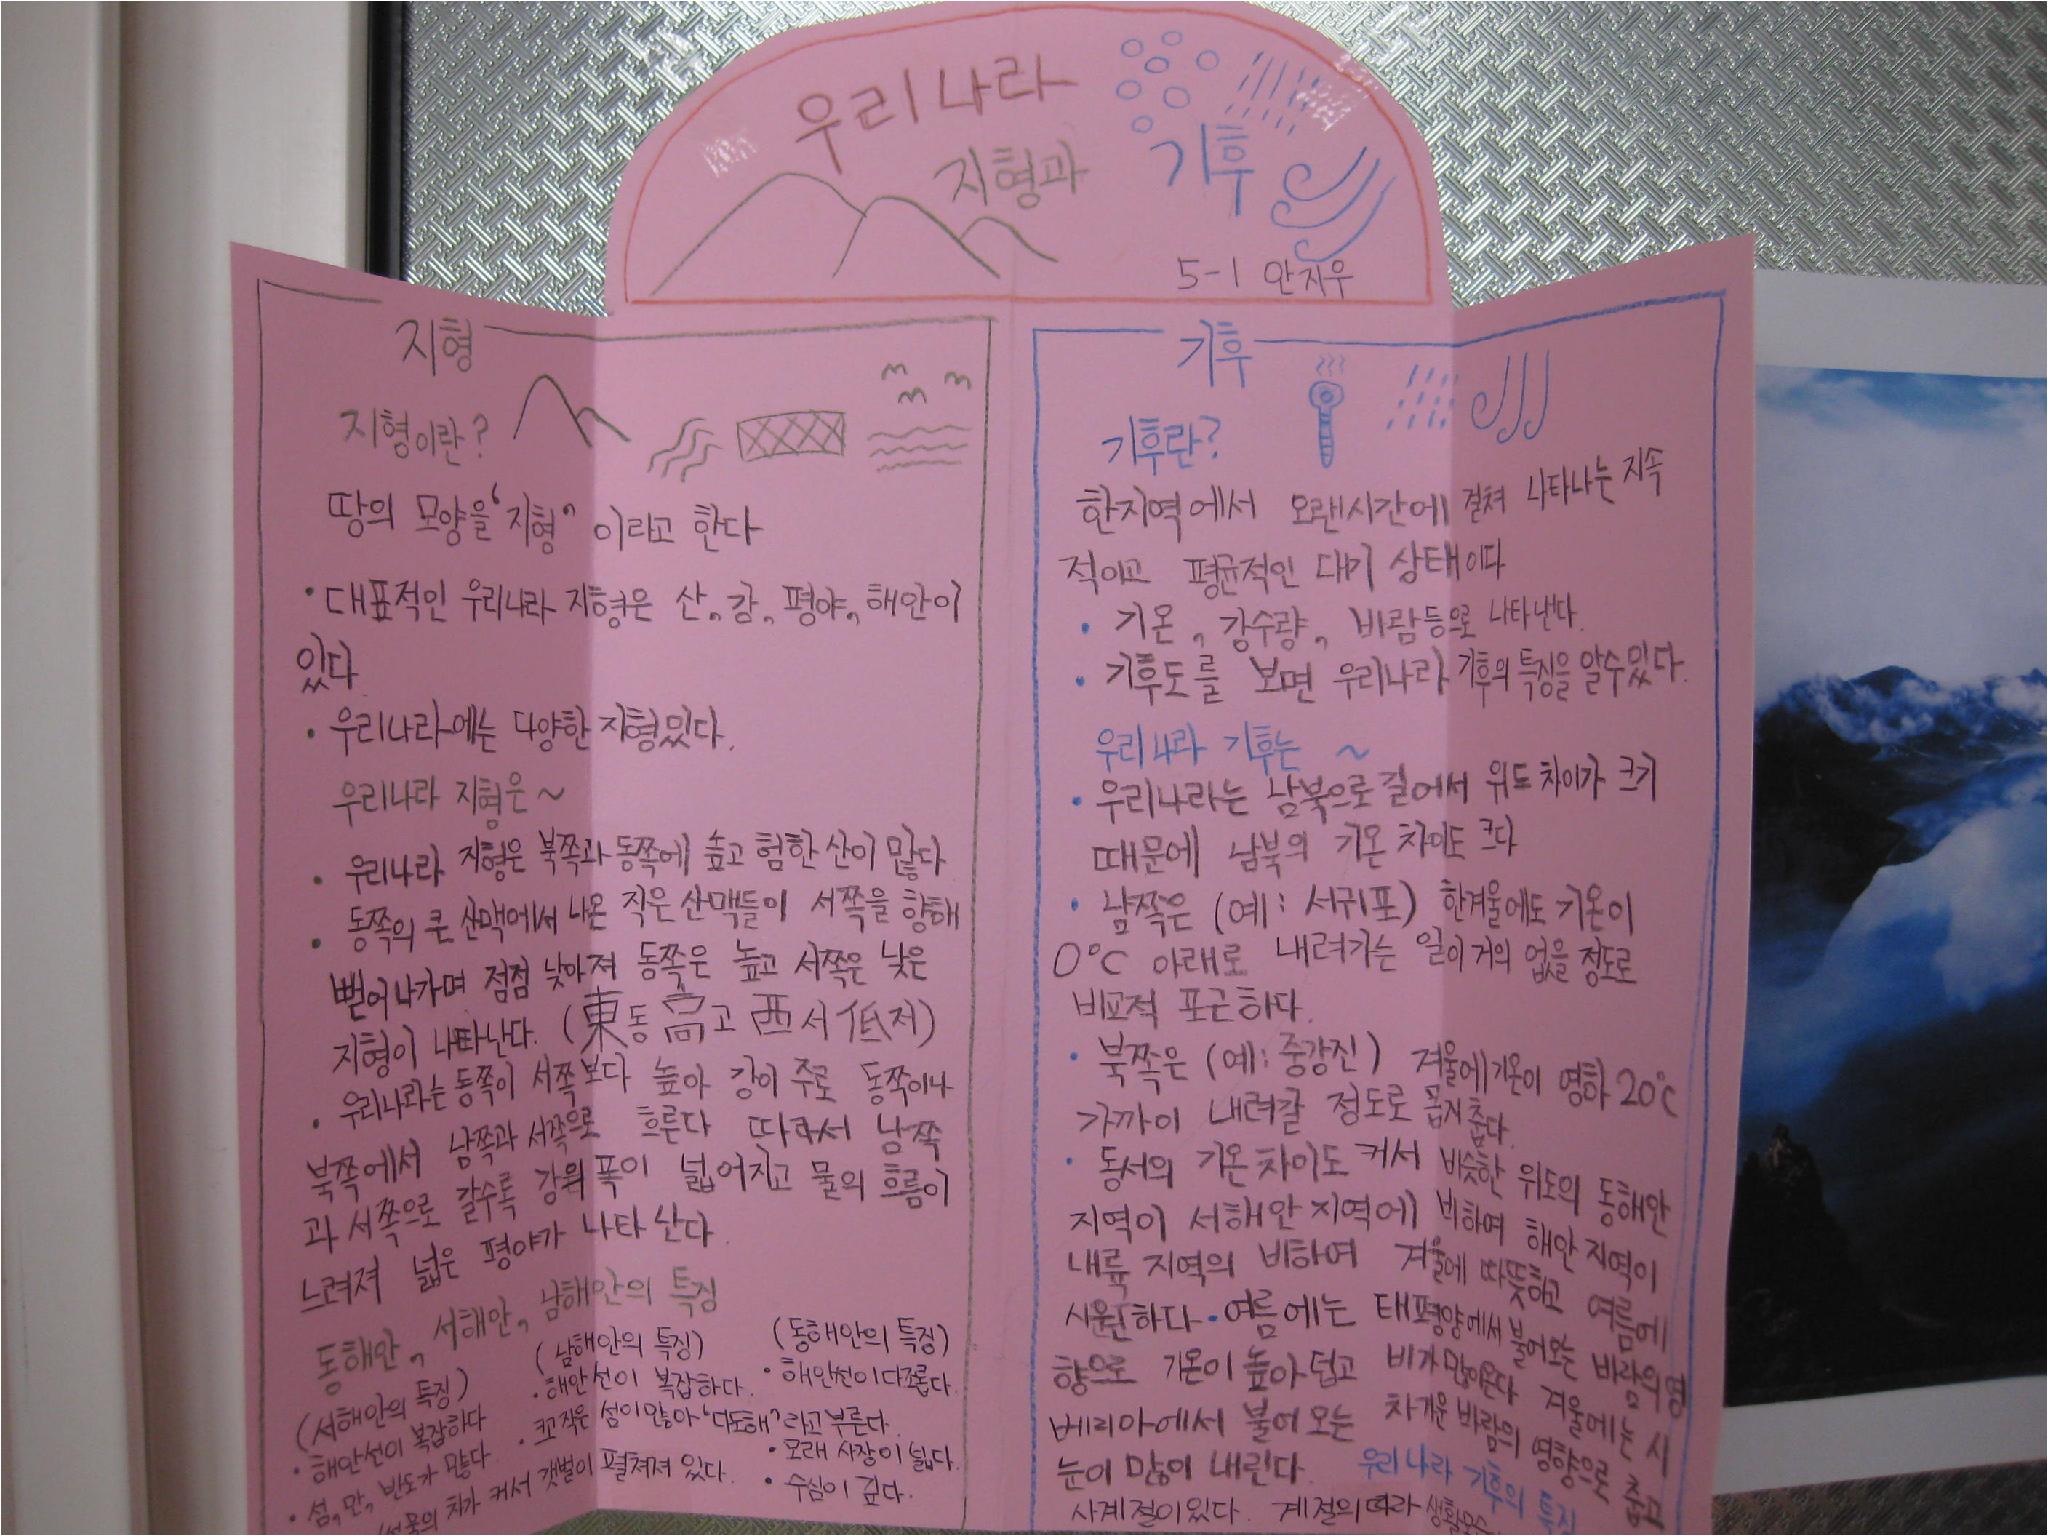 우리나라
지형과
기후
5-1 안지우
지형
지형이란?
땅의 모양을 '지형' 이라고 한다
· 대표적인 우리나라 지형은 산, 강, 평야, 해안이
있다.
· 우리나라에는 다양한 지형있다.
우리나라 지형은~
· 우리나라 지형은 북쪽과 동쪽에 높고 험한 산이 많다
· 동쪽의 큰 산맥에서 나온 작은 산맥들이 서쪽을 향해
뻗어나가며 점점 낮아져 동쪽은 높고 서쪽은 낮은
지형이 나타난다. (東동 高고 西서 低저)
· 우리나라는 동쪽이 서쪽보다 높아 강이 주로 동쪽이나
북쪽에서 남쪽과 서쪽으로 흐른다 따라서 남쪽
과 서쪽으로 갈수록 강의 폭이 넓어지고 물의 흐름이
느려져 넓은 평야가 나타난다.
동해안, 서해안, 남해안의 특징
(서해안의 특징)
· 해안선이 복잡하다
· 섬, 만, 반도가 많다.
커서 갯벌이 펼쳐져 있다.
(남해안의 특징)
· 해안선이 복잡하다.
· 크고 작은 섬이 많아 '다도해'라고 부른다.
(동해안의 특징)
· 해안선이 다조롭다.
· 모래 사장이 넓다.
· 수심이 깊다.
기후
기후란?
한지역에서 오랜시간에 걸쳐 나타나는 지속
적이고 평균적인 대기 상태이다
· 기온, 강수량, 바람등으로 나타낸다.
· 기후도를 보면 우리나라 기후의 특징을 알수있다.
우리나라 기후는 ~
· 우리나라는 남북으로 길어서 위도 차이가 크기
때문에 남북의 기온 차이도 크다
· 남쪽은 (예: 서귀포) 한겨울에도 기온이
0°C 아래로 내려가는 일이 거의 없을 정도로
비교적 포근하다.
· 북쪽은 (예: 중강진) 겨울에 기온이 영하 20°C
가까이 내려갈 정도로 몹시 춥다.
· 동서의 기온 차이도 커서 비슷한 위도의 동해안
지역이 서해안 지역에 비하여 해안 지역이
내륙 지역의 비하여 겨울에 따뜻하고 여름에
시원하다 · 여름에는 태평양에서 불어오는 바람의 영
향으로 기온이 높아 덥고 비가 많이온다 겨울에는 시
베리아에서 불어 오는 차가운 바람의 영향으로 춥고
눈이 많이 내린다. 우리나라 기후의 특징
사계절이 있다. 계절의 따라